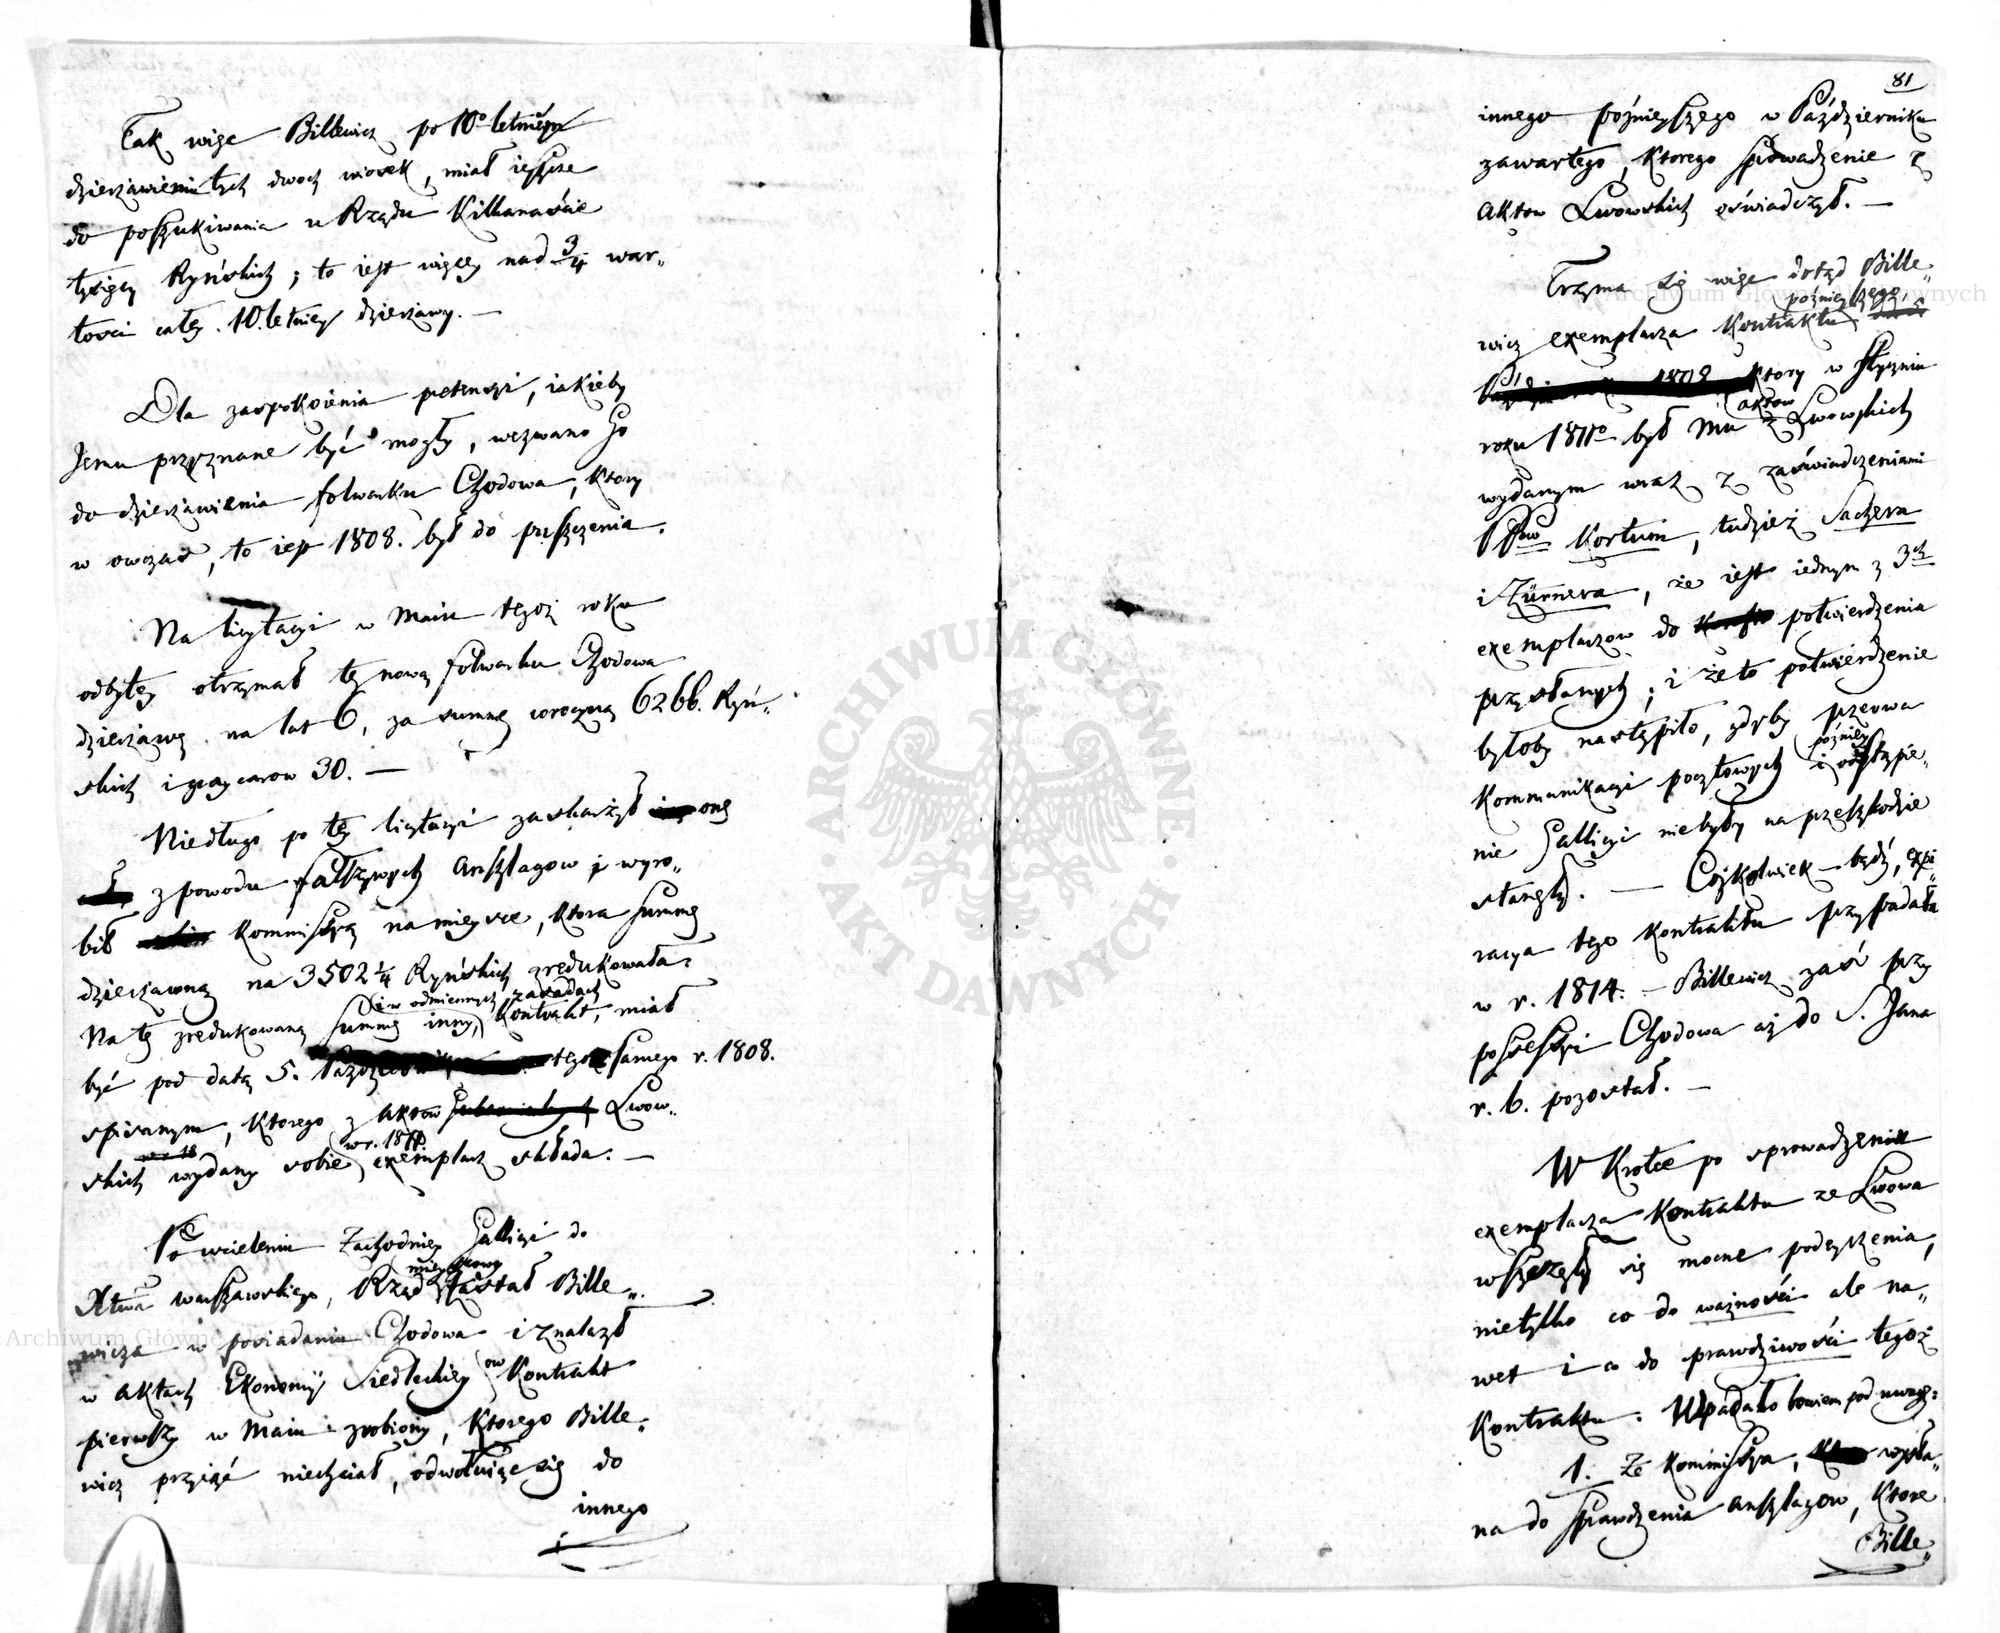 Tak więc Billewicz po 10o letniém
dzierżawieniu tych dwoch wiosek, miał ieszcze
do poszukiwania u Rządu Kilkanaście
tysięcy Ryńskich; to iest więcey nad 3/4 war„
tości całey 10.letniey dzierżawy. —
Dla zaspokoienia pretensyi, iakieby
Jemu przyznane być mogły, wezwano Go
do dzierżawienia folwarku Chodowa, ktory
w owczas, to iest 1808. był do puszczenia.
Na licytacyi w Maiu tegoż roku
odbytey otrzymał tę nową folwarku Chodowa
dzierżawę na lat 6, za summę coroczną 6266. Ryń„
skich i graycarow 30. —
Niedługo po tey licytacyi zaskarżył onę
z powodu fałszywych Anszlagow i wyro„
bił Kommissyą na mieysce, ktora summę
dzierżawną na 3502 1/4 Ryńskich zredukowała.
i w odmiennych zasadach
Na tę zredukowaną summę inny Kontrakt, miał
być pod datą 5. Październik tegoż samego r. 1808.
spisanym, ktorego z Aktow Gubernialnych Lwow„
w r. 1811.
skich wydany sobie exemplarz składa. —
Po wcieleniu Zachodniey Gallicyi do
mieyscowy
Xtwa warszawskiego, Rząd zastał Bille„
wicza w posiadaniu Chodowa i znalazł
w Aktach Ekonomii Siedleckiey ow Kontrakt
pierwszy w Maiu zrobiony, Ktorego Bille„
wicz przyiąć niechciał, odwołuiąc się do
innego
81
innego poźnieyszego w Październiku
zawartego, Ktorego sprowadzenie z
Aktow Lwowskich oświadczył. —
Trzyma się więc dotąd Bille„
poźnieyszego,
wicz exemplarza Kontraktu
1808 Ktory w Styczniu
aktow
roku 1811o był Mu z Lwowskich
wydanym wraz z zaświadczeniami
PPow Kortum, tudzież Sachera
i Zürnera, że iest iednym z 3ch
exemplarzow do potwierdzenia
przysłanych; i że to potwierdzenie
byłoby nastąpiło, gdyby przerwa
poźniey
Kommunikacyi pocztowych i odstąpie„
nie Gallicyi niebyły na przeszkodzie
stanęły. — Cożkolwiek – bądź, expi„
racya tego Kontraktu przypadała
w r. 1814. – Billewicz zaś przy
possessyi Chodowa aż do S. Jana
r. b. pozostał. —
W Krotce po sprowadzeniu
exemplarza Kontraktu ze Lwowa
wszczęły się mocne podeyrzenia,
nietylko co do ważności ale na„
wet i co do prawdziwości tegoż
Kontraktu. Wpadało bowiem pod uwagę:
1. Że Kommissya, wysła„
na do sprawdzenia anszlagow, Ktore
Bille„
Archiwum Główne Akt Dawnych
Archiwum Główne Akt Dawnych
ARCHIWUM GŁÓWNE · AKT DAWNYCH ·